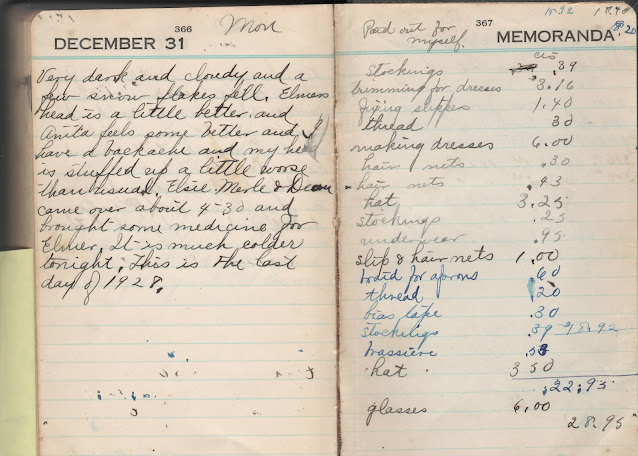 366
Mon
DECEMBER 31
Very dark and cloudy and a
few snow flakes fell. Elmers
head is a little better and
Anita feels some better and I
have a backache and my head
is stuffed up a little worse
than usual. Elsie Merle & Dean
came over about 4-30 and
brought some medicine for
Elmer. It is much colder
tonight. This is the last
day of 1928.
367
Paid out for
myself.
MEMORANDA
cts
Stockings .39
trimming for dresses 3.16
fixing slippers 1.40
thread 30
making dresses 6.00
hair nets .30
hair nets .93
hat 3.25
stockings .25
underwear .95
slip & hair nets 1.00
braid for aprons .60
thread .20
bias tape .30
stockings .39
brassiere
hat 3 50
22.95
glasses 6.00
28.95